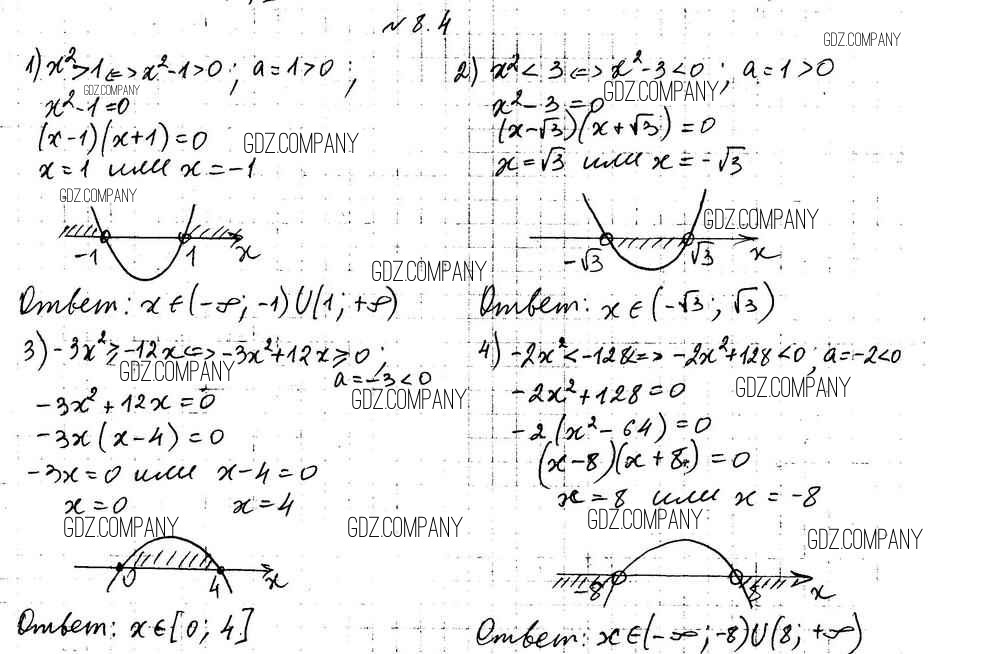 № 8.4
GDZ.COMPANY
1) x²>1 <=> x²-1>0 ; a=1>0 ;
GDZ.COMPANY
x²-1=0
(x-1)(x+1)=0
GDZ.COMPANY
x=1 или x=-1
GDZ.COMPANY
-1 1 x
Ответ: x∈(-∞; -1)∪(1; +∞)
2) x²<3 <=> x²-3<0 ; a=1>0
GDZ.COMPANY
x²-3=0
(x-√3)(x+√3)=0
x=√3 или x=-√3
GDZ.COMPANY
-√3 √3 x
GDZ.COMPANY
Ответ: x∈(-√3; √3)
3) -3x²≥-12x <=> -3x²+12x≥0 ;
GDZ.COMPANY
a=-3<0
GDZ.COMPANY
-3x²+12x=0
-3x(x-4)=0
-3x=0 или x-4=0
x=0 x=4
GDZ.COMPANY
GDZ.COMPANY
0 4 x
Ответ: x∈[0; 4]
4) -2x²<-128 <=> -2x²+128<0 ; a=-2<0
GDZ.COMPANY
-2x²+128=0
-2(x²-64)=0
(x-8)(x+8)=0
x=8 или x=-8
GDZ.COMPANY
GDZ.COMPANY
-8 8 x
Ответ: x∈(-∞; -8)∪(8; +∞)